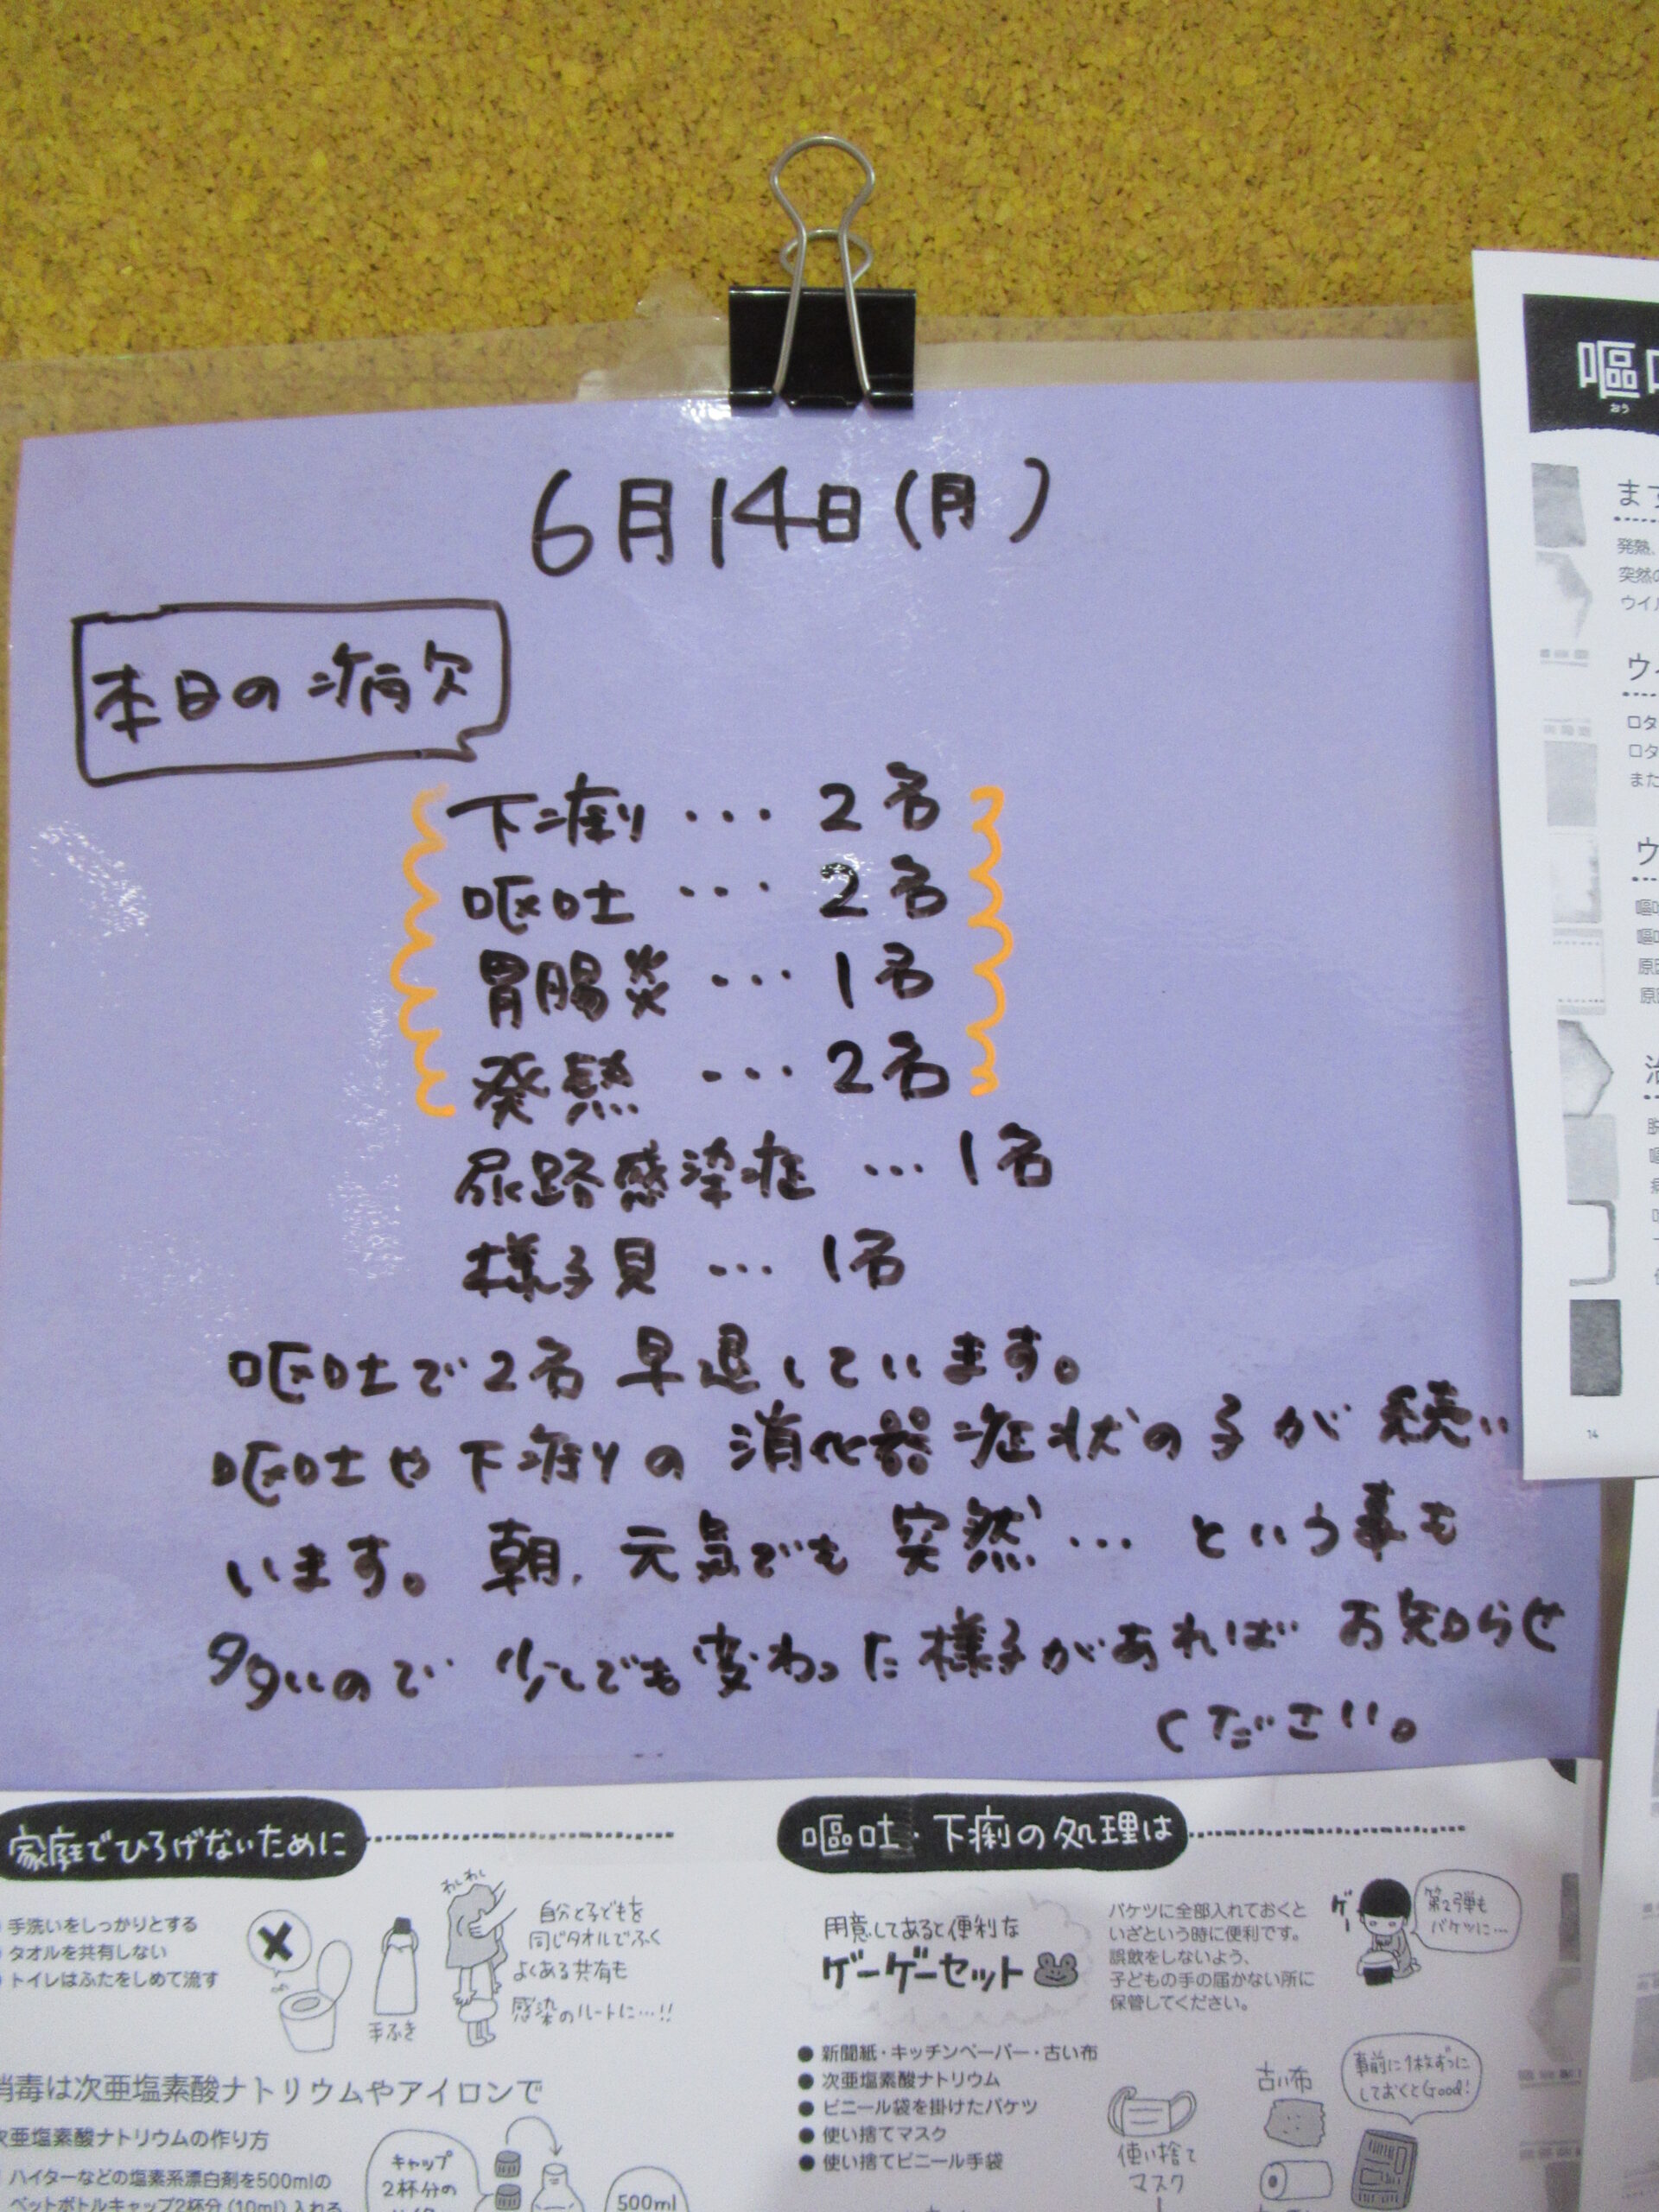 6月14日(月)
本日の病欠
下痢 ... 2名
嘔吐 ... 2名
胃腸炎 ... 1名
発熱 ... 2名
尿路感染症 ... 1名
様子見 ... 1名
嘔吐で2名 早退しています。
嘔吐や下痢の 消化器症状の子が続い
います。朝、元気でも 突然... という事も
多いので 少しでも変わった様子があれば お知らせ
ください。
家庭でひろげないために
手洗いをしっかりとする
タオルを共有しない
トイレはふたをしめて流す
手ふき
わしわし
自分と子どもを
同じタオルでふく
よくある共有も
感染のルートに…!!
消毒は次亜塩素酸ナトリウムやアイロンで
次亜塩素酸ナトリウムの作り方
ハイターなどの塩素系漂白剤を500mlの
ペットボトルキャップ2杯分(10ml)入れる
キャップ
2杯分の
500ml
嘔吐・下痢の処理は
用意してあると便利な
ゲーゲーセット
バケツに全部入れておくと
いざという時に便利です。
誤飲をしないよう、
子どもの手の届かない所に
保管してください。
ゲー
第2弾も
バケツに…
● 新聞紙・キッチンペーパー・古い布
● 次亜塩素酸ナトリウム
● ビニール袋を掛けたバケツ
● 使い捨てマスク
● 使い捨てビニール手袋
使い捨て
マスク
古い布
事前に1枚ずつに
しておくとGood!
嘔
おう
ます
発熱、
突然の
ウイル
ロタ
ロタ
また
ウ
原因
原因
治
14